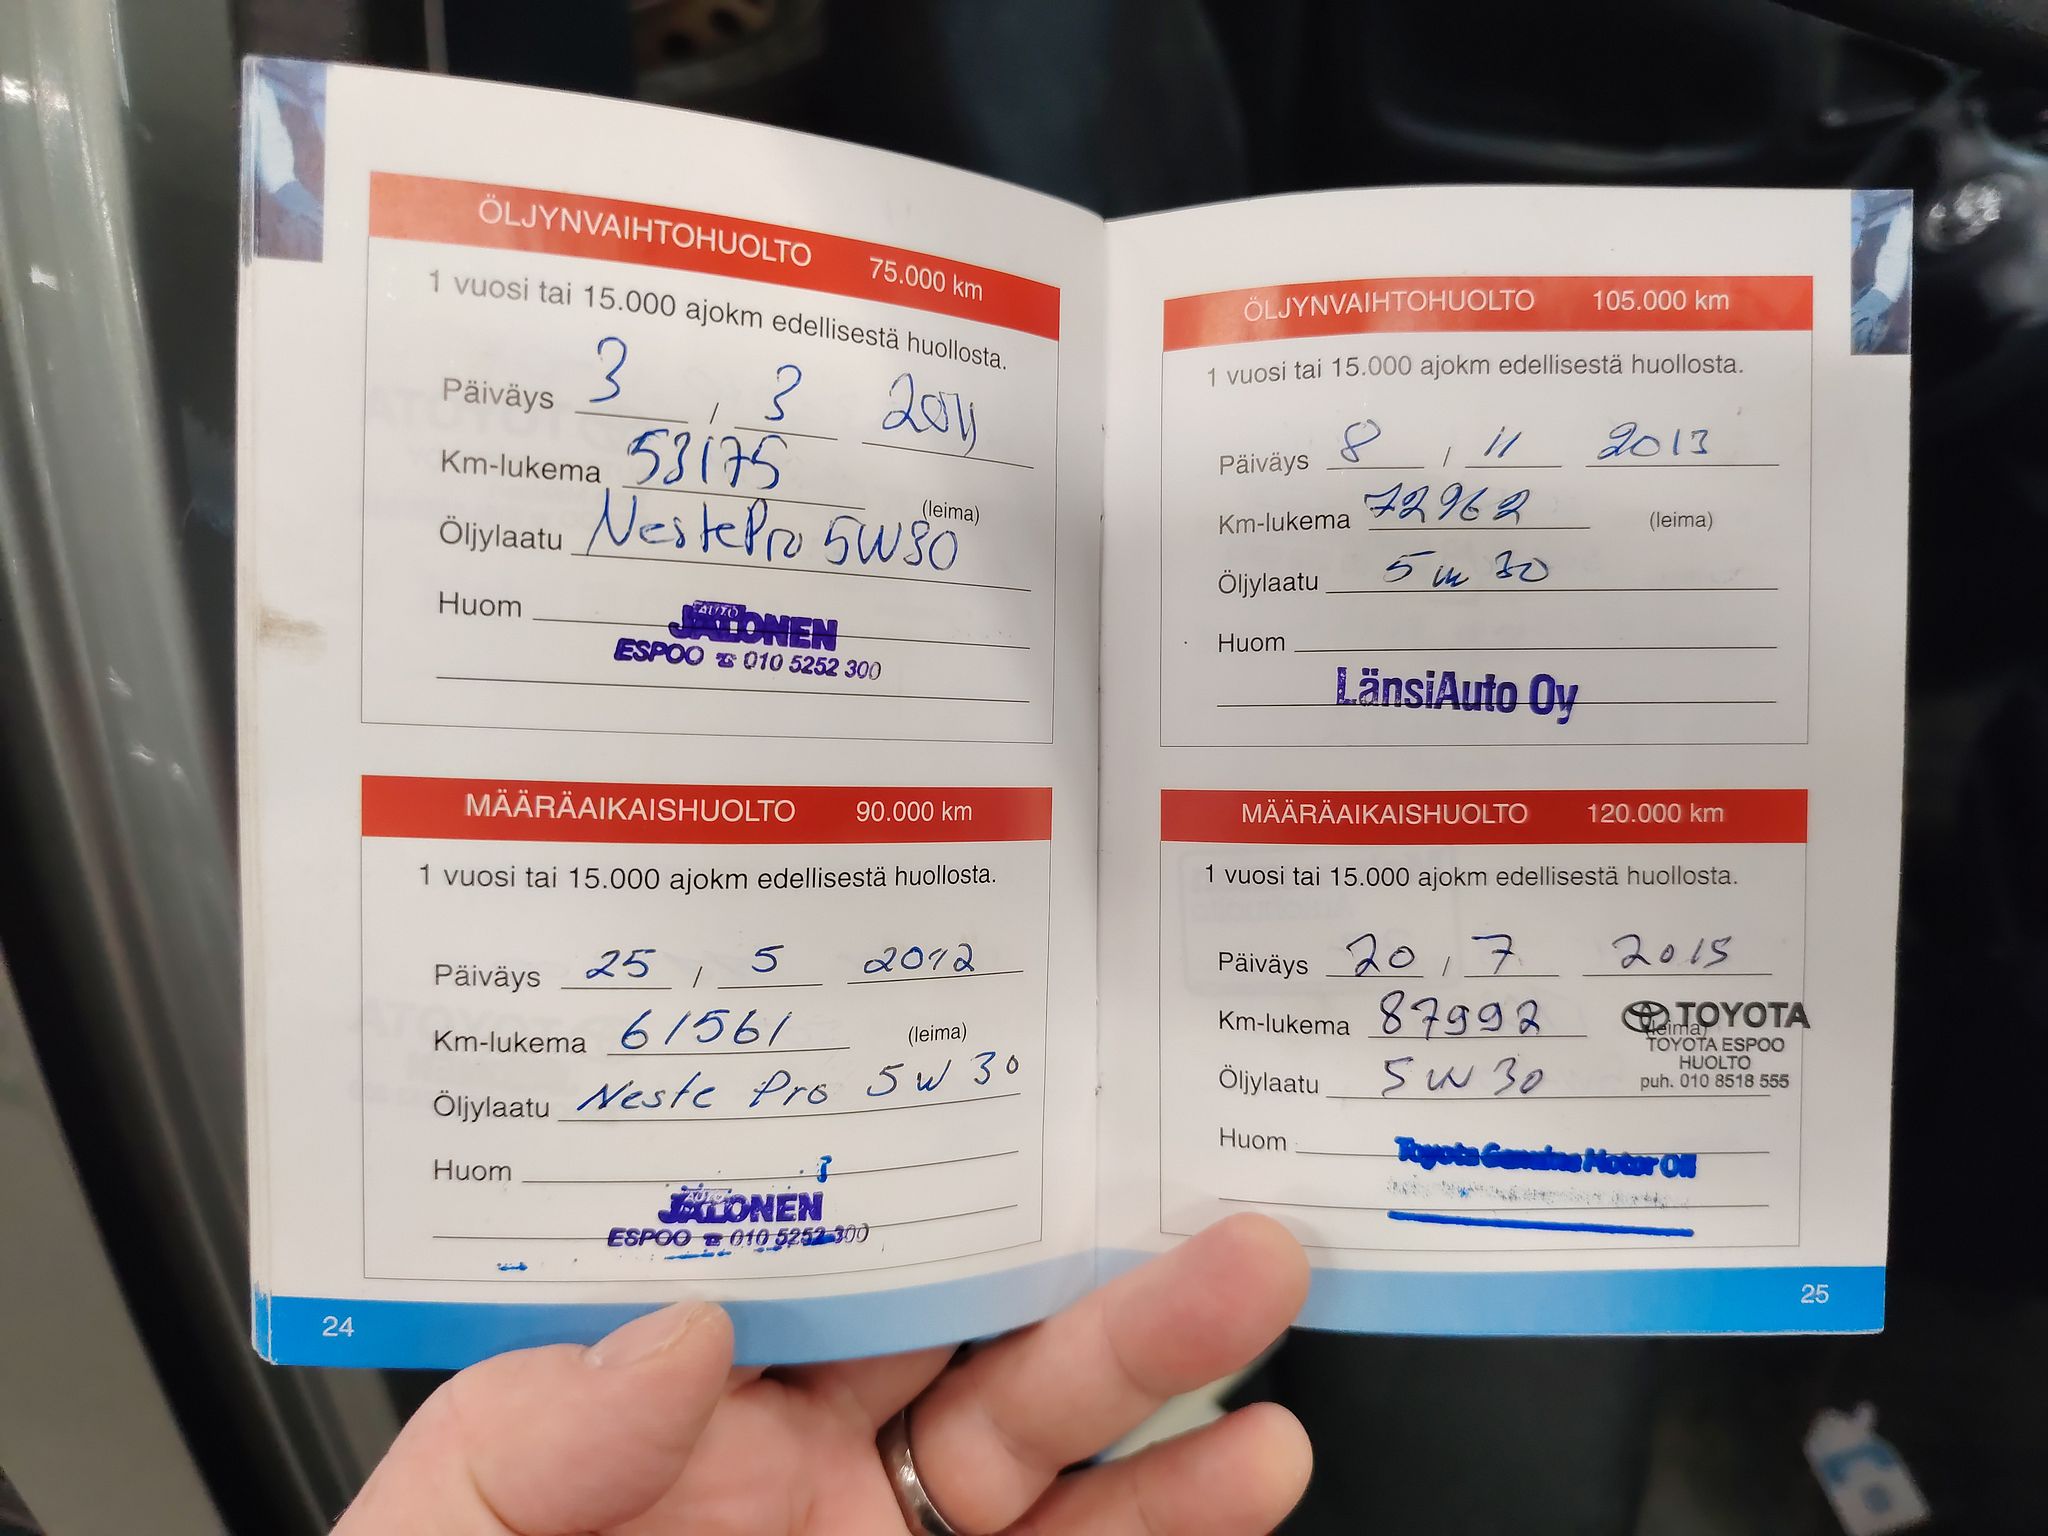 ÖLJYNVAIHTOHUOLTO 75.000 km
1 vuosi tai 15.000 ajokm edellisestä huollosta.
Päiväys 3 / 3 2011
Km-lukema 53175 (leima)
Öljylaatu NestePro 5W30
Huom
AUTO
JALONEN
ESPOO ☎ 010 5252 300
MÄÄRÄAIKAISHUOLTO 90.000 km
1 vuosi tai 15.000 ajokm edellisestä huollosta.
Päiväys 25 / 5 2012
Km-lukema 61561 (leima)
Öljylaatu Neste Pro 5W30
Huom
AUTO
JALONEN
ESPOO ☎ 010 5252 300
24
ÖLJYNVAIHTOHUOLTO 105.000 km
1 vuosi tai 15.000 ajokm edellisestä huollosta.
Päiväys 8 / 11 2013
Km-lukema 72962 (leima)
Öljylaatu 5w30
Huom
LänsiAuto Oy
MÄÄRÄAIKAISHUOLTO 120.000 km
1 vuosi tai 15.000 ajokm edellisestä huollosta.
Päiväys 20 / 7 2015
Km-lukema 87992 (leima)
TOYOTA
TOYOTA ESPOO
HUOLTO
puh. 010 8518 555
Öljylaatu 5W30
Huom Toyota Genuine Motor Oil
25